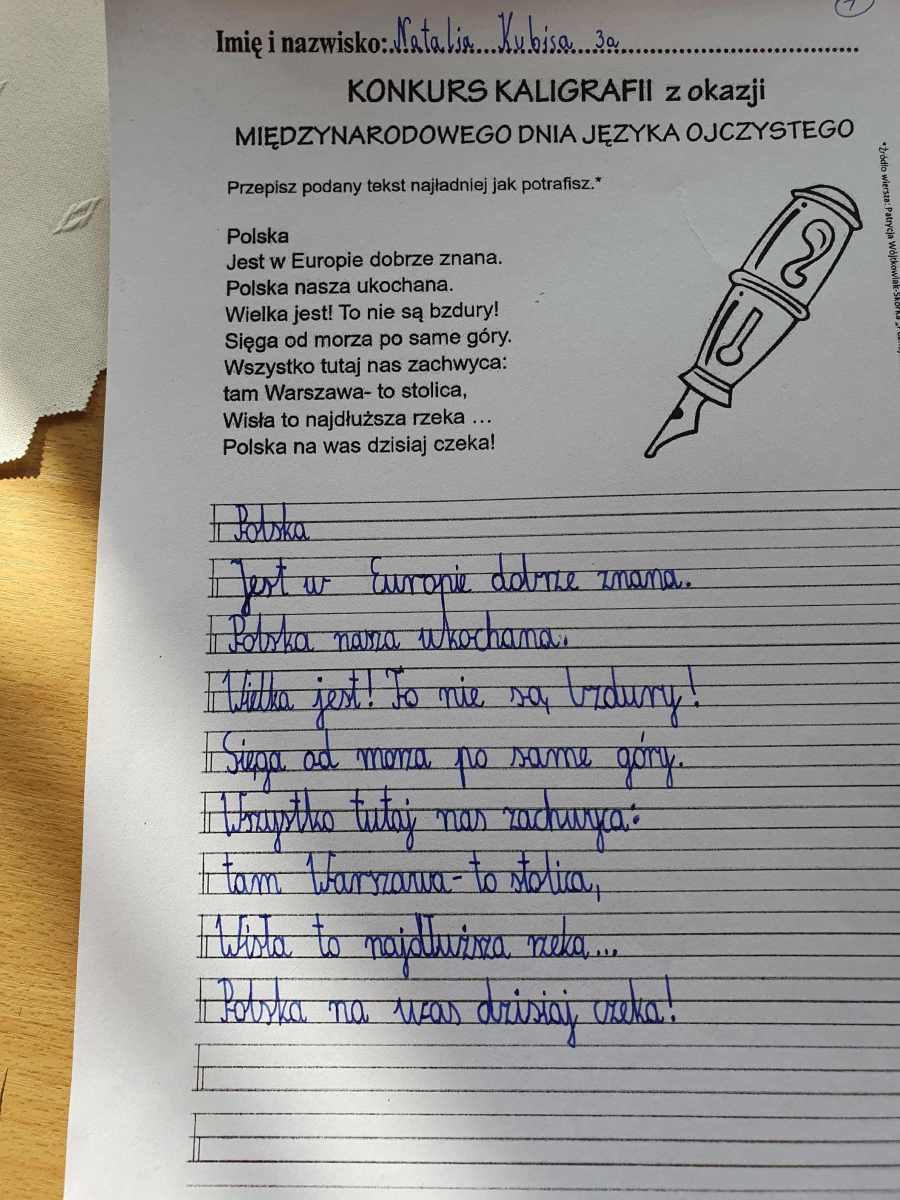 1
Imię i nazwisko: Natalia Kubisa 3a
KONKURS KALIGRAFII z okazji
MIĘDZYNARODOWEGO DNIA JĘZYKA OJCZYSTEGO
Przepisz podany tekst najładniej jak potrafisz.*
Polska
Jest w Europie dobrze znana.
Polska nasza ukochana.
Wielka jest! To nie są bzdury!
Sięga od morza po same góry.
Wszystko tutaj nas zachwyca:
tam Warszawa- to stolica,
Wisła to najdłuższa rzeka ...
Polska na was dzisiaj czeka!
*Źródło wiersza: Patrycja Wojtkowiak-Skóra
Polska
Jest w Europie dobrze znana.
Polska nasza ukochana.
Wielka jest! To nie są bzdury!
Sięga od morza po same góry.
Wszystko tutaj nas zachwyca:
tam Warszawa- to stolica,
Wisła to najdłuższa rzeka...
Polska na was dzisiaj czeka!